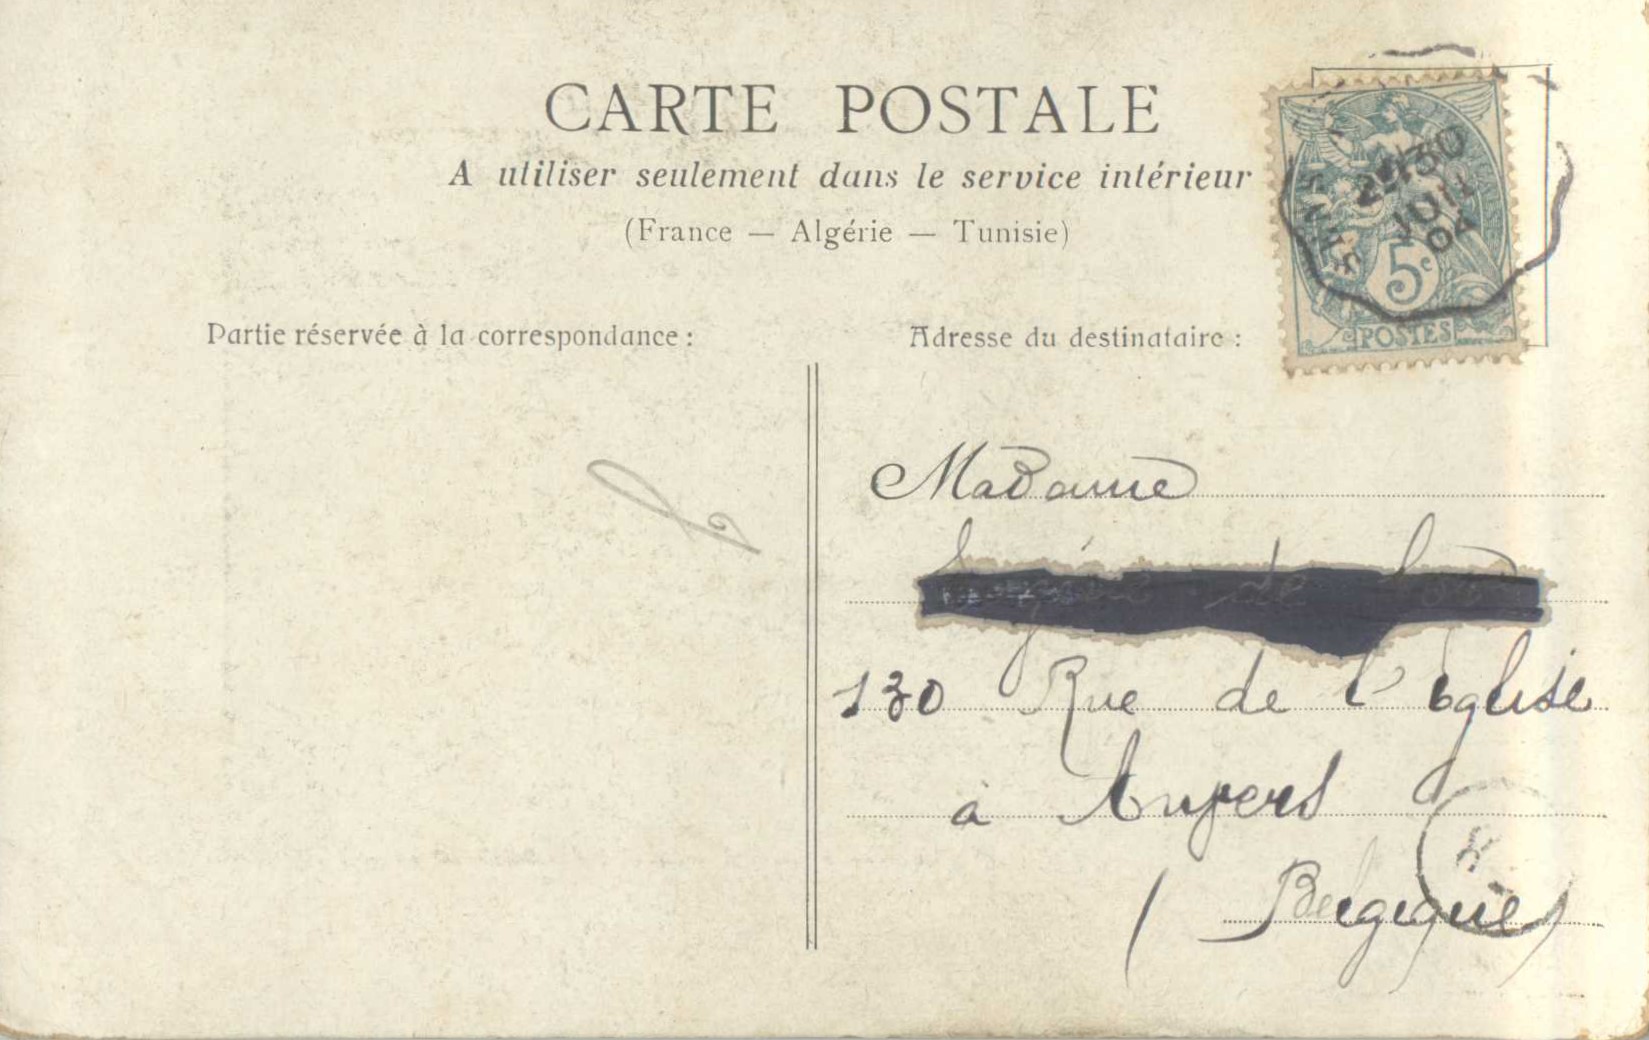 CARTE POSTALE
A utiliser seulement dans le service intérieur
(France — Algérie — Tunisie)
Partie réservée à la correspondance :
Adresse du destinataire :
5c
POSTES
30
JUIL
04
Madame
de
130 Rue de l'église
à Anvers
(Belgique)